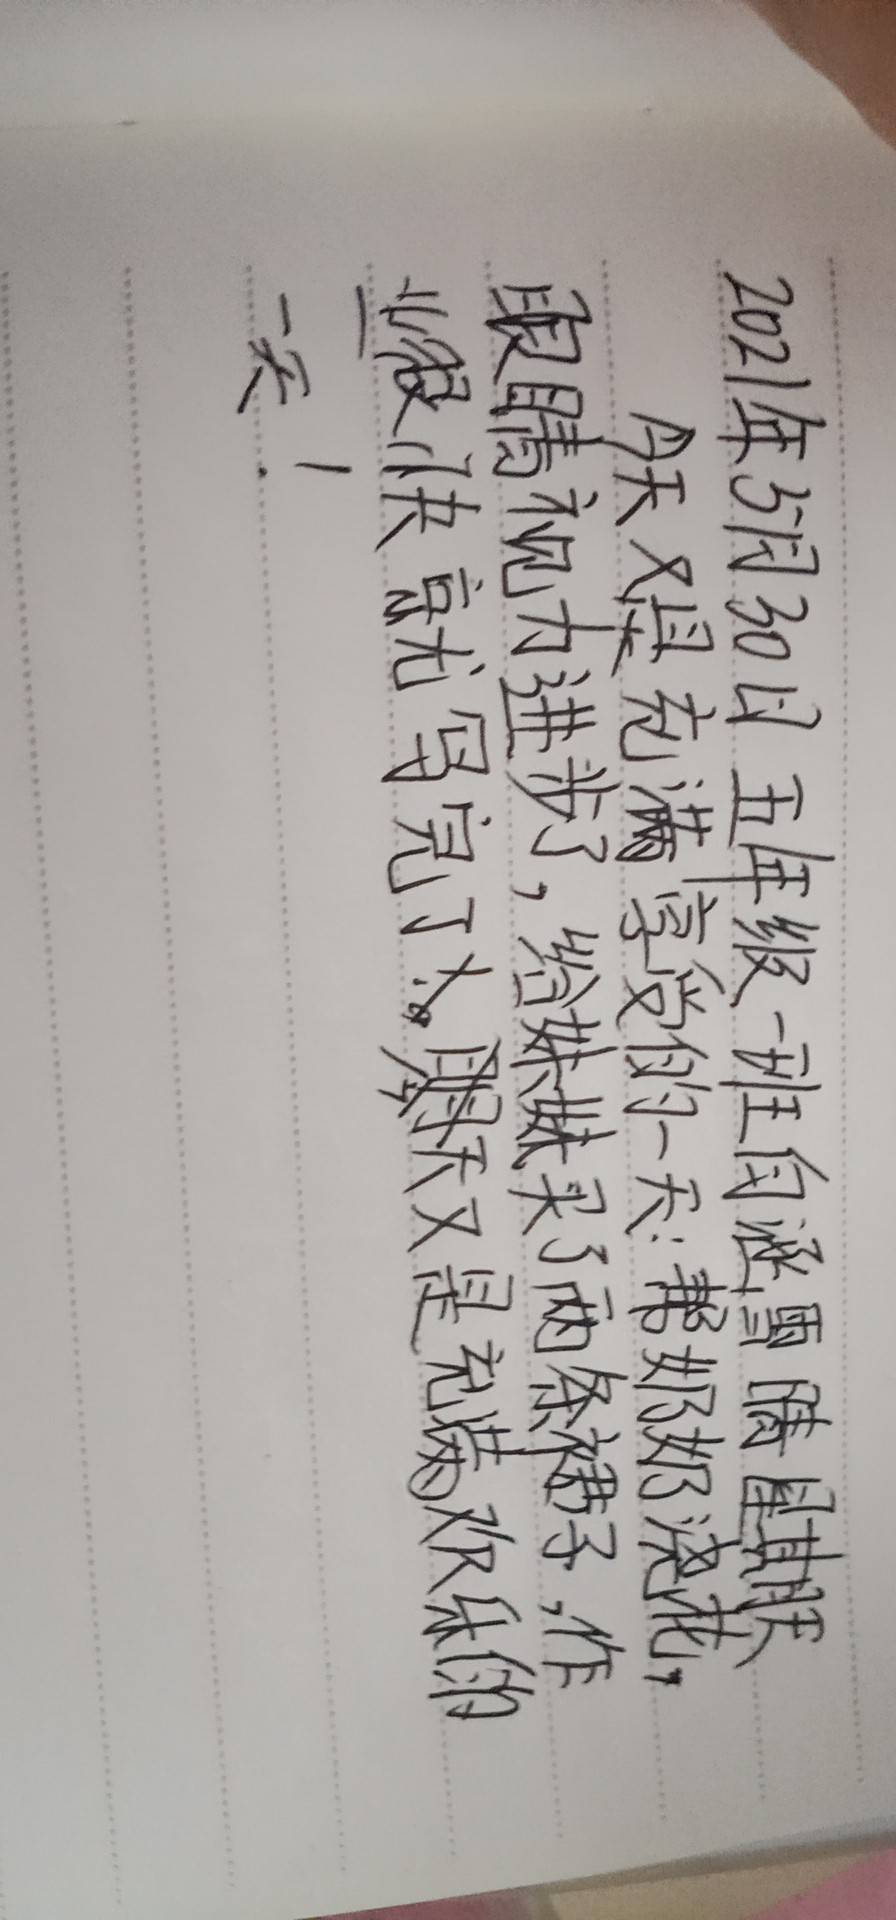 2021年5月30日 五年级一班白涵雪 晴 星期天
今天又是充满享受的一天:帮奶奶浇花,
眼睛视力进步了,给妹妹买了两条裙子,作
业很快就写完了。天又是充满欢乐的
一天!